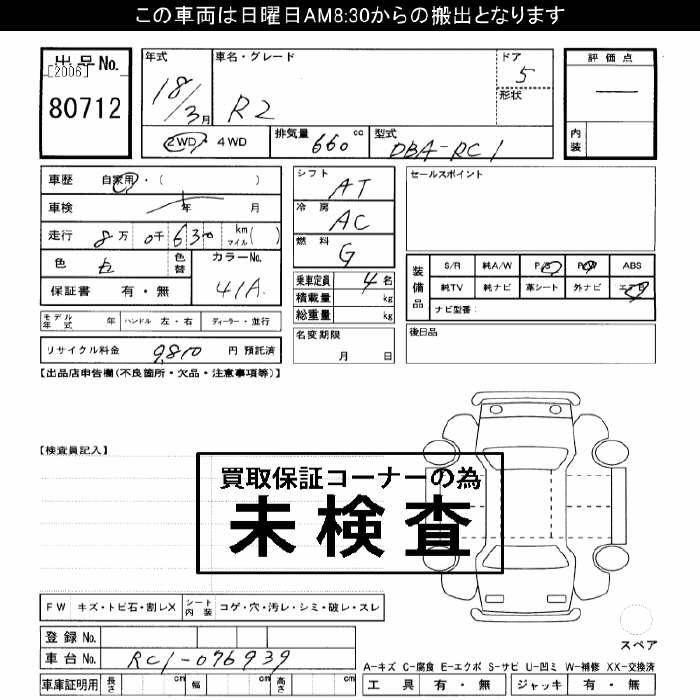 この車両は日曜日AM8:30からの搬出となります
出品No.
[2006]
80712
年式
18/3月
車名・グレード
R2
ドア
5
形状
2WD・4WD
排気量 660 cc
型式 DBA-RC1
評価点
内装
車歴 自家用・( )
車検 年 月
走行 8万 0千 630 km マイル( )
色 白
色替
カラーNo.
41A
保証書 有・無
シフト AT
冷房 AC
燃料 G
乗車定員 4名
積載量 kg
総重量 kg
セールスポイント
装備品
S/R 純A/W P/S P/W ABS
純TV 純ナビ 革シート 外ナビ エアB
ナビ型番:
モデル年式 年 ハンドル 左・右 ディーラー・並行
リサイクル料金 9,810 円 預託済
名変期限
月 日
後日品
【出品店申告欄(不良箇所・欠品・注意事項等)】
【検査員記入】
買取保証コーナーの為
未検査
FW キズ・トビ石・割レX シート内装 コゲ・穴・汚レ・シミ・破レ・スレ
登録No.
車台No. RC1-076939
車庫証明用 長さ cm 幅 cm 高さ cm
スペア
A-キズ C-腐食 E-エクボ S-サビ U-凹ミ W-補修 XX-交換済
工具 有・無 ジャッキ 有・無